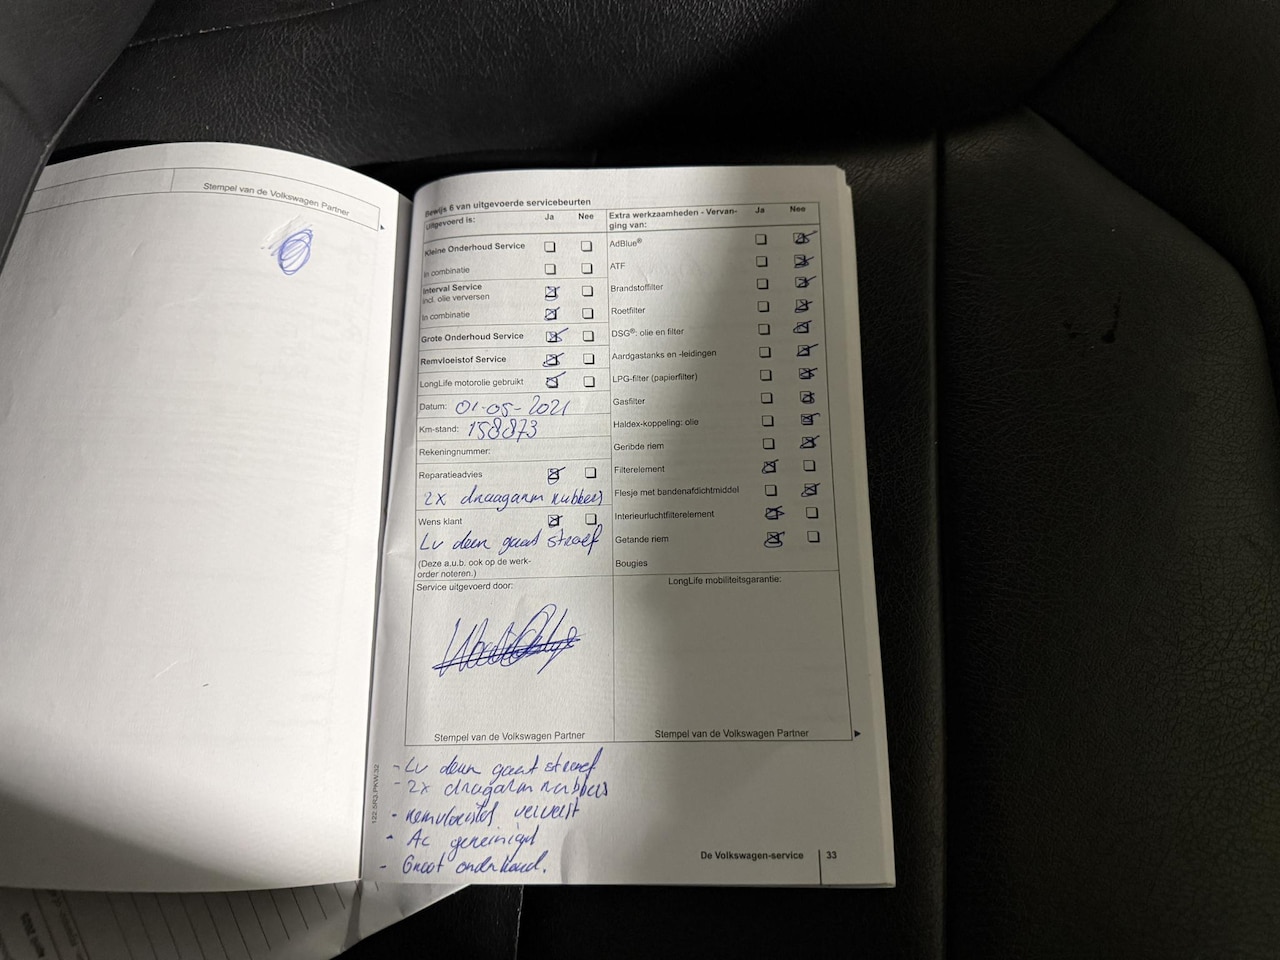 Stempel van de Volkswagen Partner
Bewijs 6 van uitgevoerde servicebeurten
Uitgevoerd is: Ja Nee
Kleine Onderhoud Service
In combinatie
Interval Service
incl. olie verversen
In combinatie
Grote Onderhoud Service
Remvloeistof Service
LongLife motorolie gebruikt
Datum: 01-05-2021
Km-stand: 158873
Rekeningnummer:
Reparatieadvies
2x draagarm rubbers
Wens klant
Lv deur gaat stroef
(Deze a.u.b. ook op de werk-
order noteren.)
Service uitgevoerd door:
Stempel van de Volkswagen Partner
Extra werkzaamheden - Vervan-
ging van: Ja Nee
AdBlue®
ATF
Brandstoffilter
Roetfilter
DSG®: olie en filter
Aardgastanks en -leidingen
LPG-filter (papierfilter)
Gasfilter
Haldex-koppeling: olie
Geribde riem
Filterelement
Flesje met bandenafdichtmiddel
Interieurluchtfilterelement
Getande riem
Bougies
LongLife mobiliteitsgarantie:
Stempel van de Volkswagen Partner
- Lv deur gaat stroef
- 2x dragarm rubbers
- remvloeistof ververst
- Ac gereinigd
- Groot onderhoud.
122.5R3.PKW.32
De Volkswagen-service 33